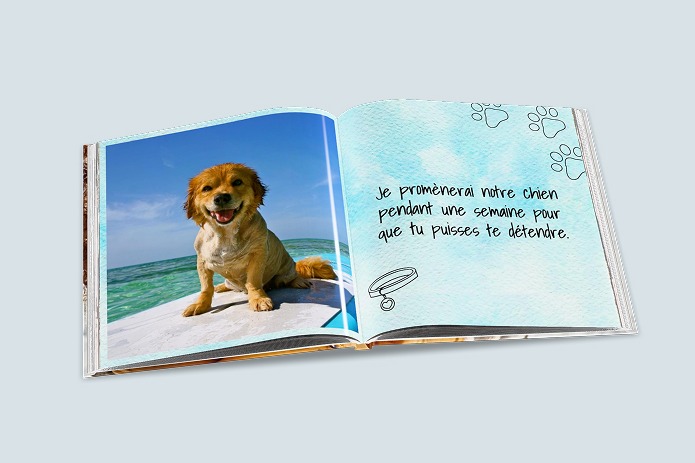 Je promènerai notre chien
pendant une semaine pour
que tu puisses te détendre.